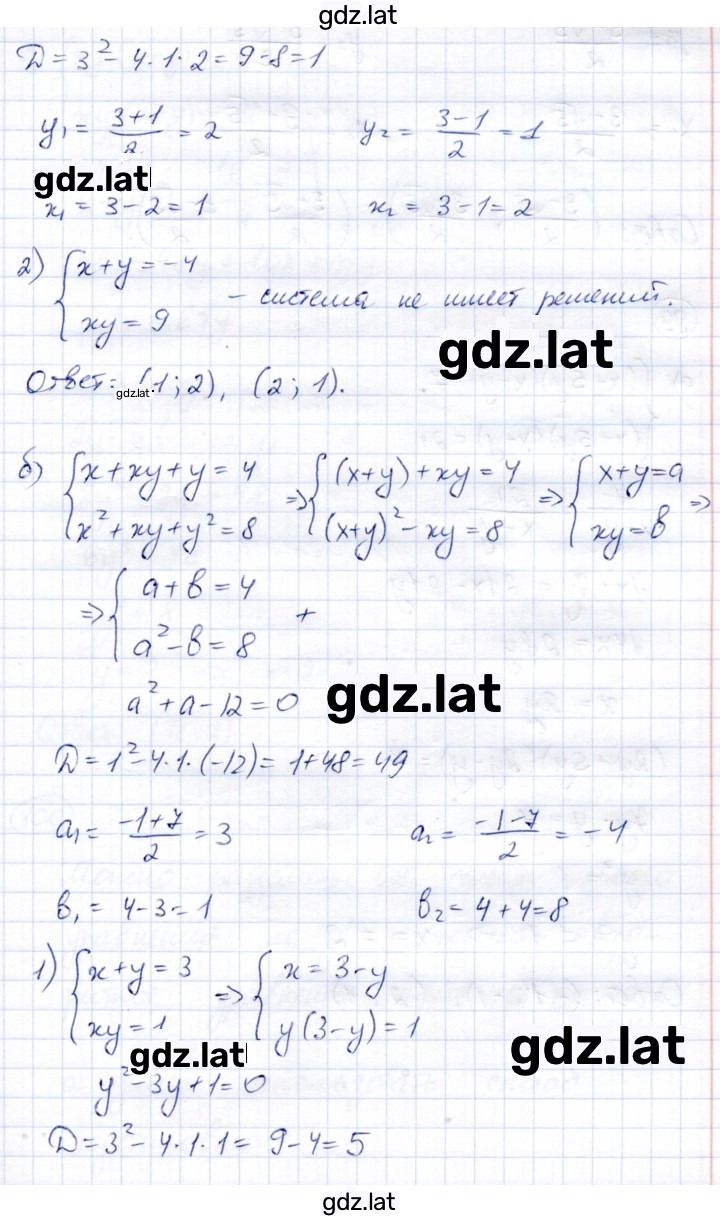 gdz.lat
D = 3² - 4·1·2 = 9-8 = 1
y₁ = (3+1)/2 = 2 y₂ = (3-1)/2 = 1
gdz.lat
x₁ = 3-2 = 1 x₂ = 3-1 = 2
2) { x+y = -4
xy = 9 - система не имеет решений.
gdz.lat
Ответ: (1; 2), (2; 1).
gdz.lat
б) { x+xy+y = 4 => { (x+y)+xy = 4 => { x+y=a =>
x²+xy+y² = 8 (x+y)²-xy = 8 xy=b
=> { a+b = 4 +
a²-b = 8
a²+a-12 = 0
gdz.lat
D = 1²-4·1·(-12) = 1+48 = 49
a₁ = (-1+7)/2 = 3 a₂ = (-1-7)/2 = -4
b₁ = 4-3 = 1 b₂ = 4+4 = 8
1) { x+y = 3 => { x = 3-y
xy = 1 y(3-y) = 1
gdz.lat
gdz.lat
y²-3y+1 = 0
D = 3²-4·1·1 = 9-4 = 5
gdz.lat